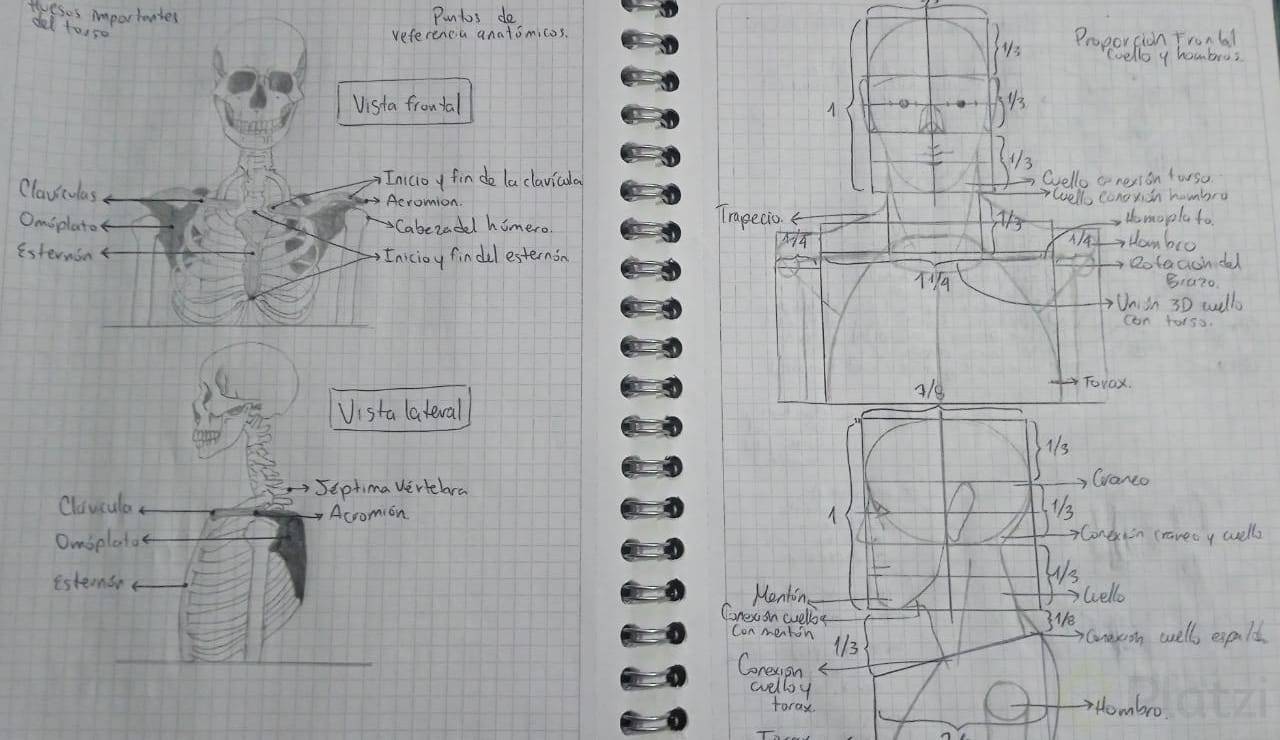 Huesos importantes
del torso
Puntos de
referencia anatómicos.
Vista frontal
Clavículas
Omóplato
Esternón
Inicio y fin de la clavícula
Acromion.
Cabeza del húmero.
Inicio y fin del esternón
Vista lateral
Séptima Vértebra
Acromión
Clavícula
Omóplato
Esternón
Proporción Frontal
Cuello y hombros.
1
1/3
1/3
1/3
Cuello conexión torso.
Cuello conexión hombro
Trapecio.
1/3
Homoplato.
1/4
1/4
Hombro
Rotación del
Brazo.
1 1/4
Unión 3D cuello
con torso.
Torax.
7/8
1
1/3
Craneo
1/3
Conexión craneo y cuello
1/3
Mentón
Cuello
Conexión cuello
Con mentón
1/8
Conexión cuello espalda
1/3
Conexión
cuello y
torax.
Hombro.
Platzi